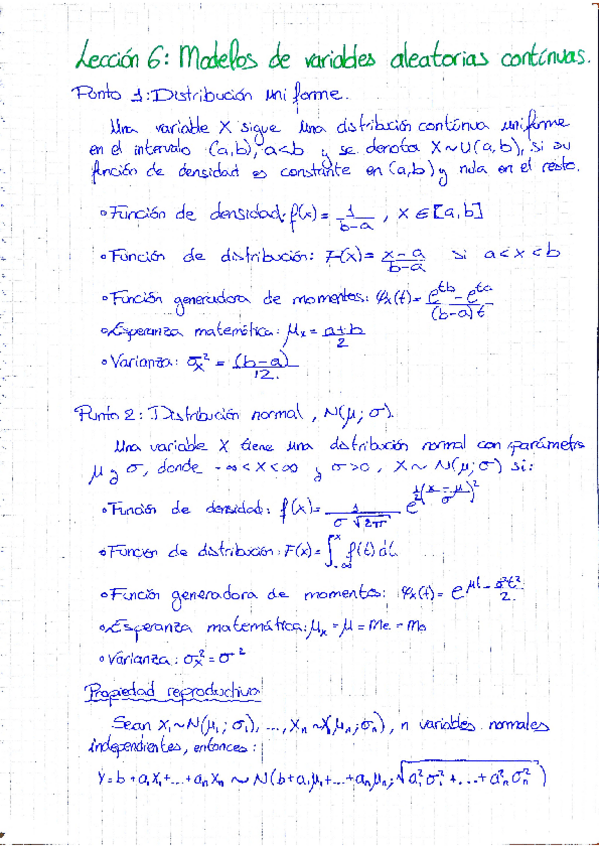 Lección 6: Modelos de variables aleatorias contínuas.
Punto 1: Distribución uniforme.
Una variable X sigue una distribución contínua uniforme
en el intervalo (a,b), a<b y se denota X~U(a,b), si su
función de densidad es constante en (a,b) y nula en el resto.
• Función de densidad: f(x) = 1/(b-a) , x ∈ [a,b]
• Función de distribución: F(x) = (x-a)/(b-a) si a<x<b
• Función generadora de momentos: φx(t) = (e^tb - e^ta)/((b-a)t)
• Esperanza matemática: μx = (a+b)/2
• Varianza: σx² = (b-a)/12.
Punto 2: Distribución normal, N(μ; σ).
Una variable X tiene una distribución normal con parámetros
μ y σ, donde -∞<x<∞ y σ>0, X~N(μ; σ) si:
• Función de densidad: f(x) = 1/(σ√2π) e^½((x-μ)/σ)²
• Función de distribución: F(x) = ∫_-∞^x f(t) dt
• Función generadora de momentos: φx(t) = e^μt - σ²t²/2.
• Esperanza matemática: μx = μ = Me = Mo
• Varianza: σx² = σ²
Propiedad reproductiva
Sean X₁~N(μ₁; σ₁), ..., Xn~N(μn; σn), n variables normales
independientes, entonces:
Y = b + a₁X₁ + ... + anXn ~ N(b + a₁μ₁ + ... + anμn; √(a₁²σ₁² + ... + an²σn²))